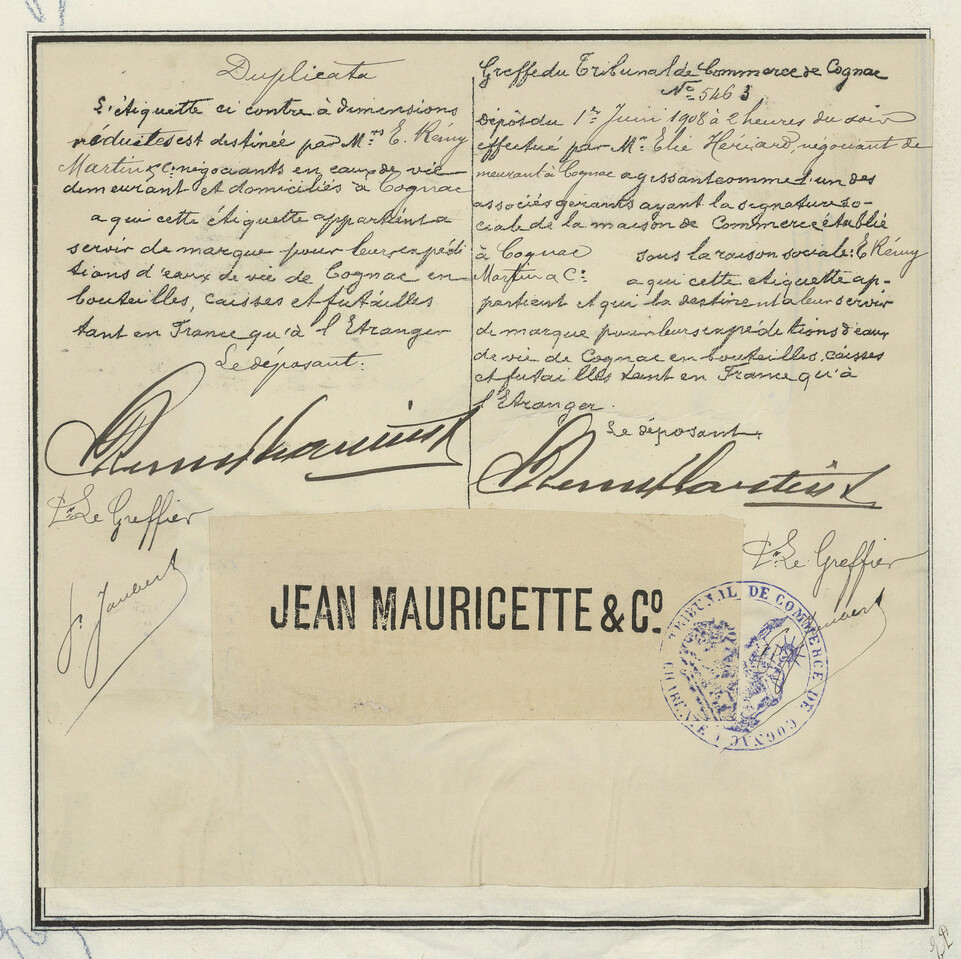 Duplicata
L'étiquette ci contre à dimensions
réduites est destinée par Mrs E. Rémy
Martin & Co négociants en eaux de vie
demeurant et domiciliés à Cognac
a qui cette étiquette appartient a
servir de marque pour leurs expédi
tions d'eaux de vie de Cognac en
bouteilles, caisses et futailles
tant en France qu'à l'Etranger
Le déposant:
E Remy Martin & Co
Pr Le Greffier
J. Jaubert
Greffe du Tribunal de Commerce de Cognac
No 5463
dépôt du 1er Juin 1908 à 2 heures du soir
effectué par Mr Elie Hériard, négociant de
meurant à Cognac agissant comme l'un des
associés gérants ayant la signature so-
ciale de la maison de Commerce établie
à Cognac sous la raison sociale: E Rémy
Martin & Co a qui cette étiquette ap-
partient et qui la destinent a leur servir
de marque pour leurs expéditions d'eaux
de vie de Cognac en bouteilles, caisses
et futailles tant en France qu'à
l'Etranger.
Le déposant
E Remy Martin & Co
Pr Le Greffier
JEAN MAURICETTE & Co.
TRIBUNAL DE COMMERCE DE COGNAC
CHARENTE